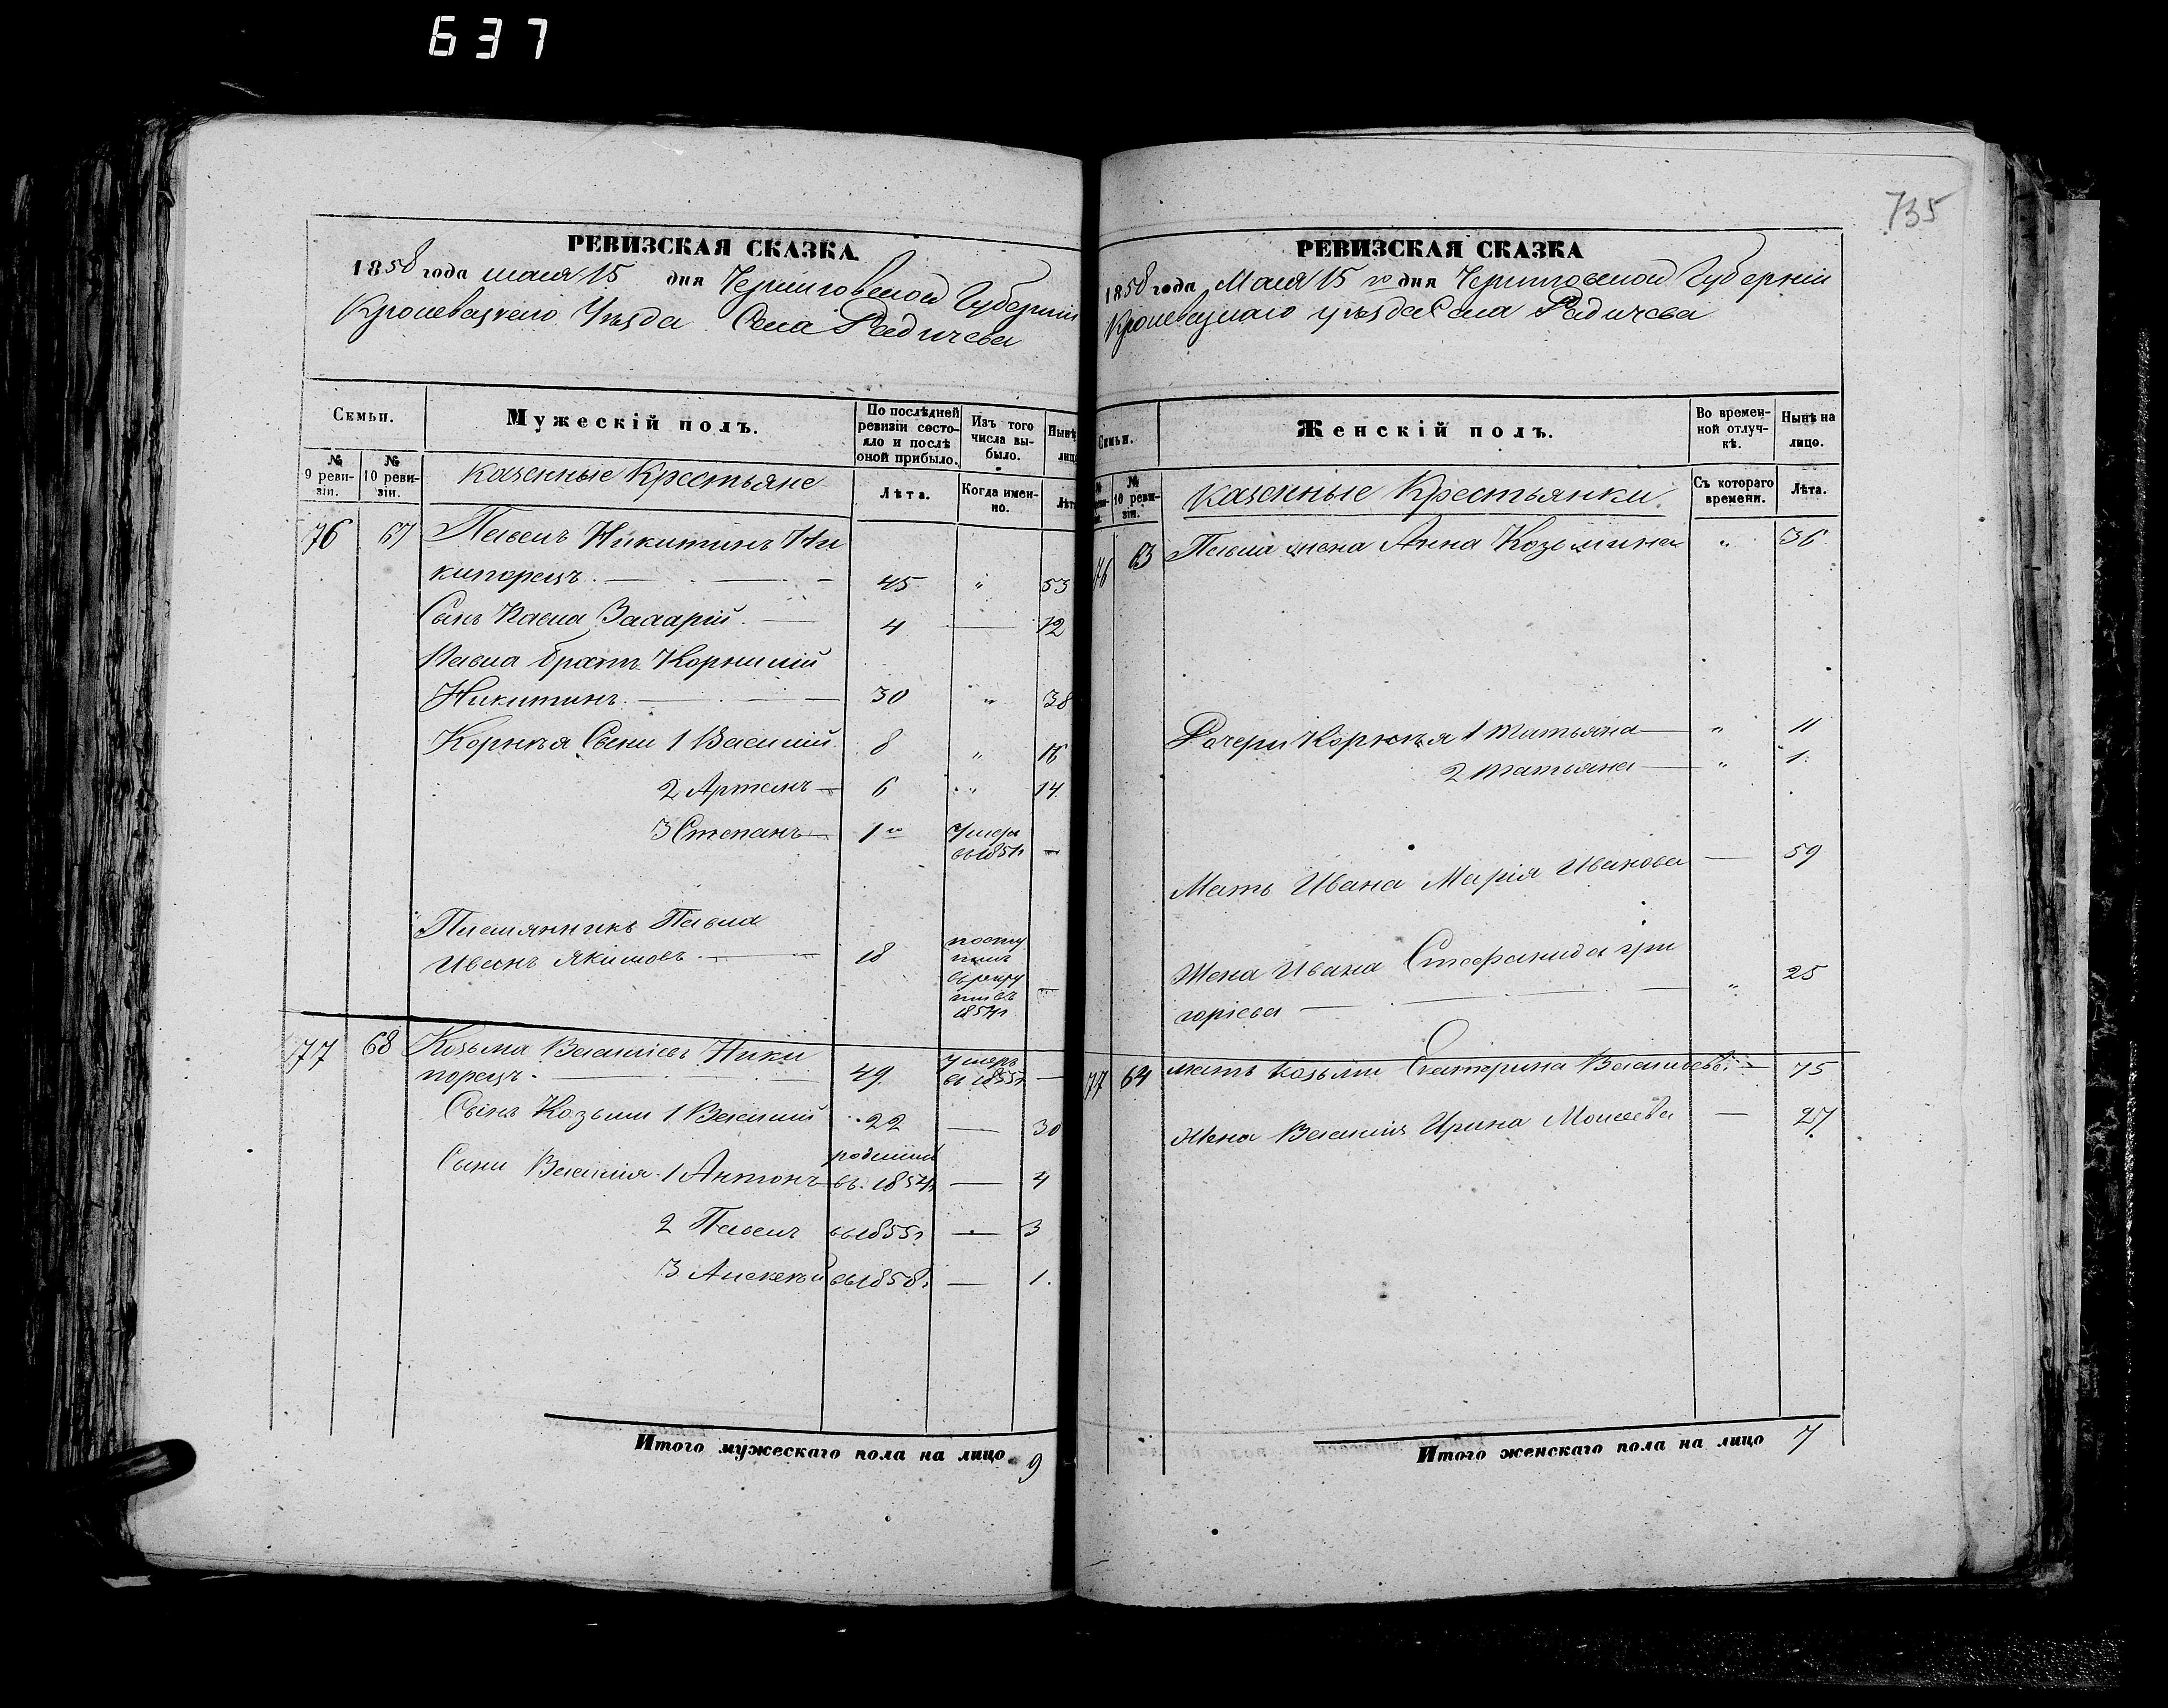 637
735
РЕВИЗСКАЯ СКАЗКА
1858 года мая 15 дня Черниговской Губерніи
Кролевецкаго Уѣзда Села Радичева
Семьи.
Мужескій полъ.
По послѣдней ревизіи состояло и послѣ оной прибыло.
Изъ того числа выбыло.
Нынѣ лицо
№ 9 ревизіи.
№ 10 ревизіи.
Казенные Крестьяне
Лѣта.
Когда именно.
Лѣта
76 67 Павелъ Никитинъ Ни
кипорецъ. 45 " 53
Сынъ Павла Захарій. 4 — 12
Павла братъ Корнилій
Никитинъ. 30 " 38
Корнѣя Сыны 1 Василий 8 " 16
2 Артемъ 6 " 14
3 Степанъ 1 го Умеръ
въ 1851г —
Племянникъ Павла
Иванъ Якимовъ 18 посту
пилъ
въ рекру
ты въ
1854г —
77 68 Козьма Васильевъ Ники
порецъ. 49. Умеръ
въ 1855г —
Сынъ Козьмы 1 Василий 22 — 30
Сыны Василия 1 Антонъ родился
въ 1854г — 4
2 Павелъ въ 1855г — 3
3 Алексѣй въ 1858г — 1.
Итого мужескаго пола на лицо 9
РЕВИЗСКАЯ СКАЗКА
1858 года Мая 15 го дня Черниговской Губерніи
Кролевецкаго уѣзда Села Радичева
Семьи.
Женскій полъ.
Во временной отлучкѣ.
Нынѣ на лицо.
№ 10 ревизіи.
Казенные Крестьянки
Съ котораго времени.
Лѣта.
76 63 Павла жена Анна Козьмина " 36
Дочери Корнѣя 1 Татьяна " 11
2 татьяна " 1.
Мать Ивана Марія Иванова — 59
Жена Ивана Стефанида гри
горіева " 25
77 64 мать Козьмы Екатерина Васильева — 75
Жена Василія Ирина Моисеева — 27
Итого женскаго пола на лицо 7